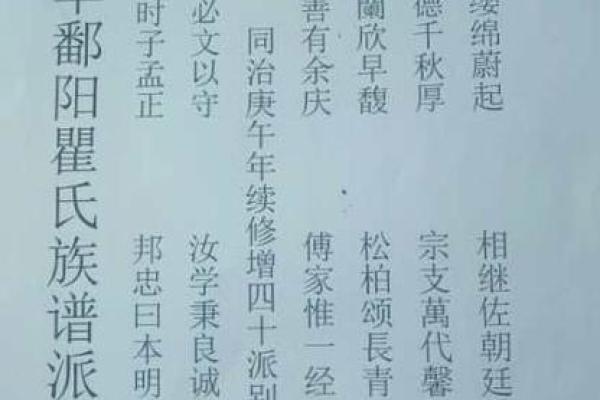 鄱阳瞿氏族谱派
时子孟正 邦忠曰本明
必文以守 汝学秉良诚
同治庚午年续修增四十派别
善有余庆 傅家惟一经
蘭欣早馥 松柏颂長青
德千秋厚 宗支萬代馨
绵蔚起 相继佐朝廷